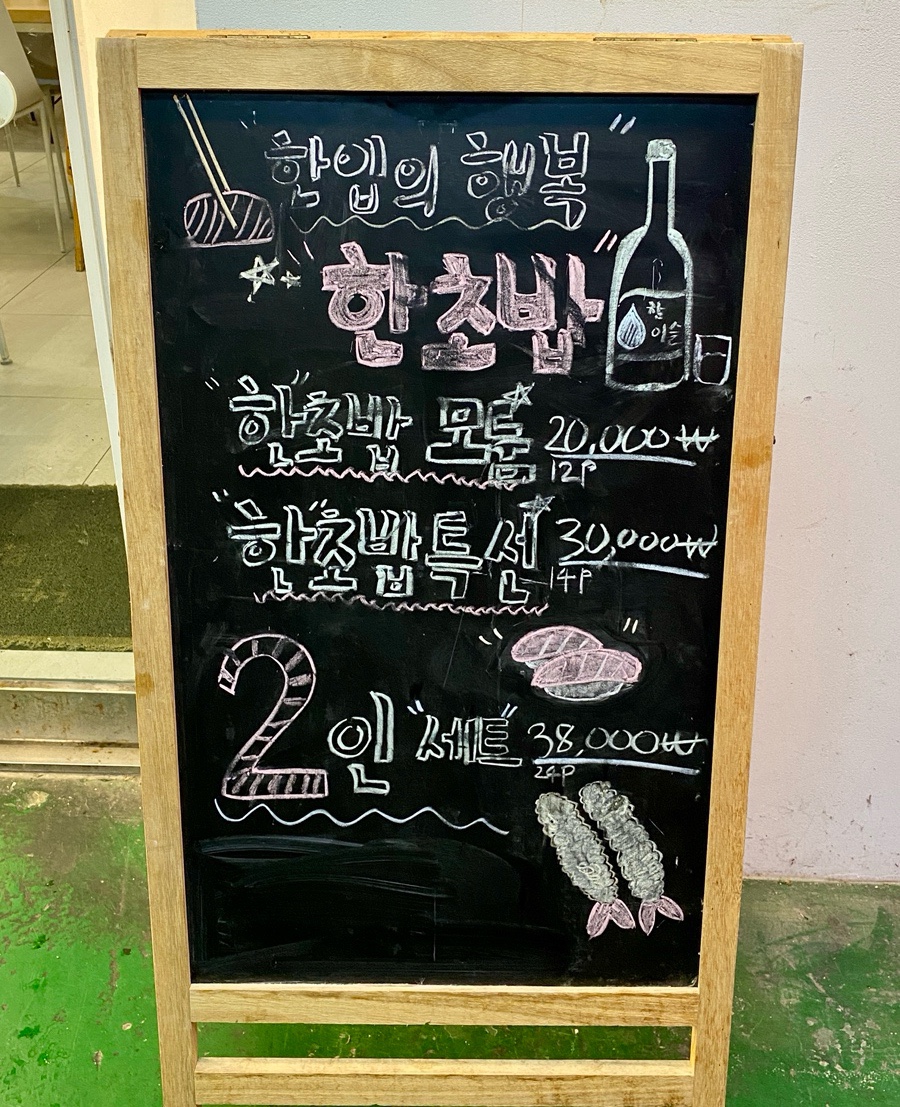 "한입의 행복"
한초밥
참
이슬
"한"초밥 모듬 20,000₩
12P
"한"초밥특선 30,000₩
14P
2인 "세트" 38,000₩
24P